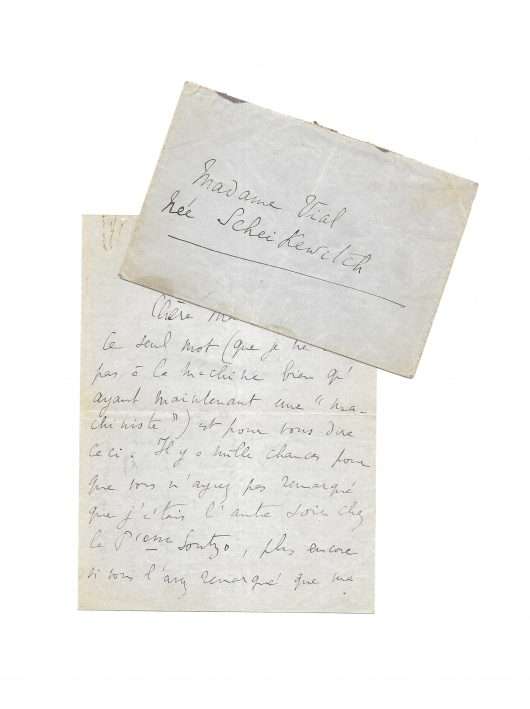 Madame Vial
née Scheikewitch
Chère Ma
Ce seul mot (que je ne
pas à la machine bien qu'
ayant maintenant une "ma-
chiniste") est pour vous dire
ceci. Il y a mille chances pour
que vous n'ayez pas remarqué
que j'étais l'autre soir chez
la Pcesse Soutzo, plus encore
si vous l'avez remarqué que ma